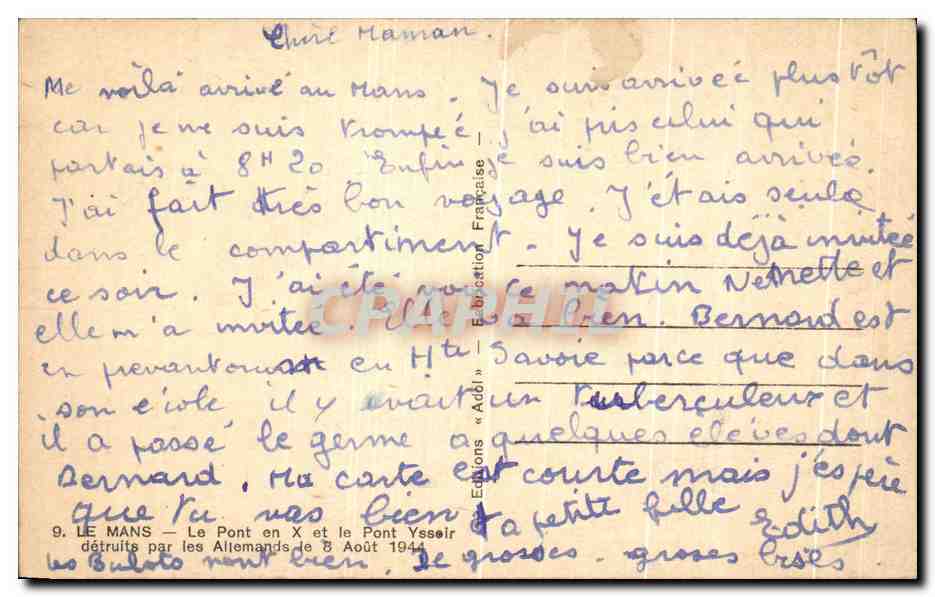 Chère Maman.
Me voilà arrivé au Mans. Je suis arrivée plus tôt
car je me suis trompée, j'ai pris celui qui
partais à 8H20 Enfin je suis bien arrivée.
J'ai fait très bon voyage. J'étais seule
dans le compartiment. Je suis déjà invitée
ce soir. J'ai été voir ce matin Nenette et
elle m'a invitée. Elle va bien. Bernard est
en prevantorium en Hte Savoie parce que dans
son école il y avait un tuberculeux et
il a passé le germe a quelques élèves dont
Bernard. Ma carte est courte mais j'espère
que tu vas bien ta petite fille
Edith
9. LE MANS — Le Pont en X et le Pont Yssoir
détruits par les Allemands le 8 Août 1944
les Bulots vont bien. De grosses. groses bises
Editions « Adol » — Fabrication Française —
CPAPHIL